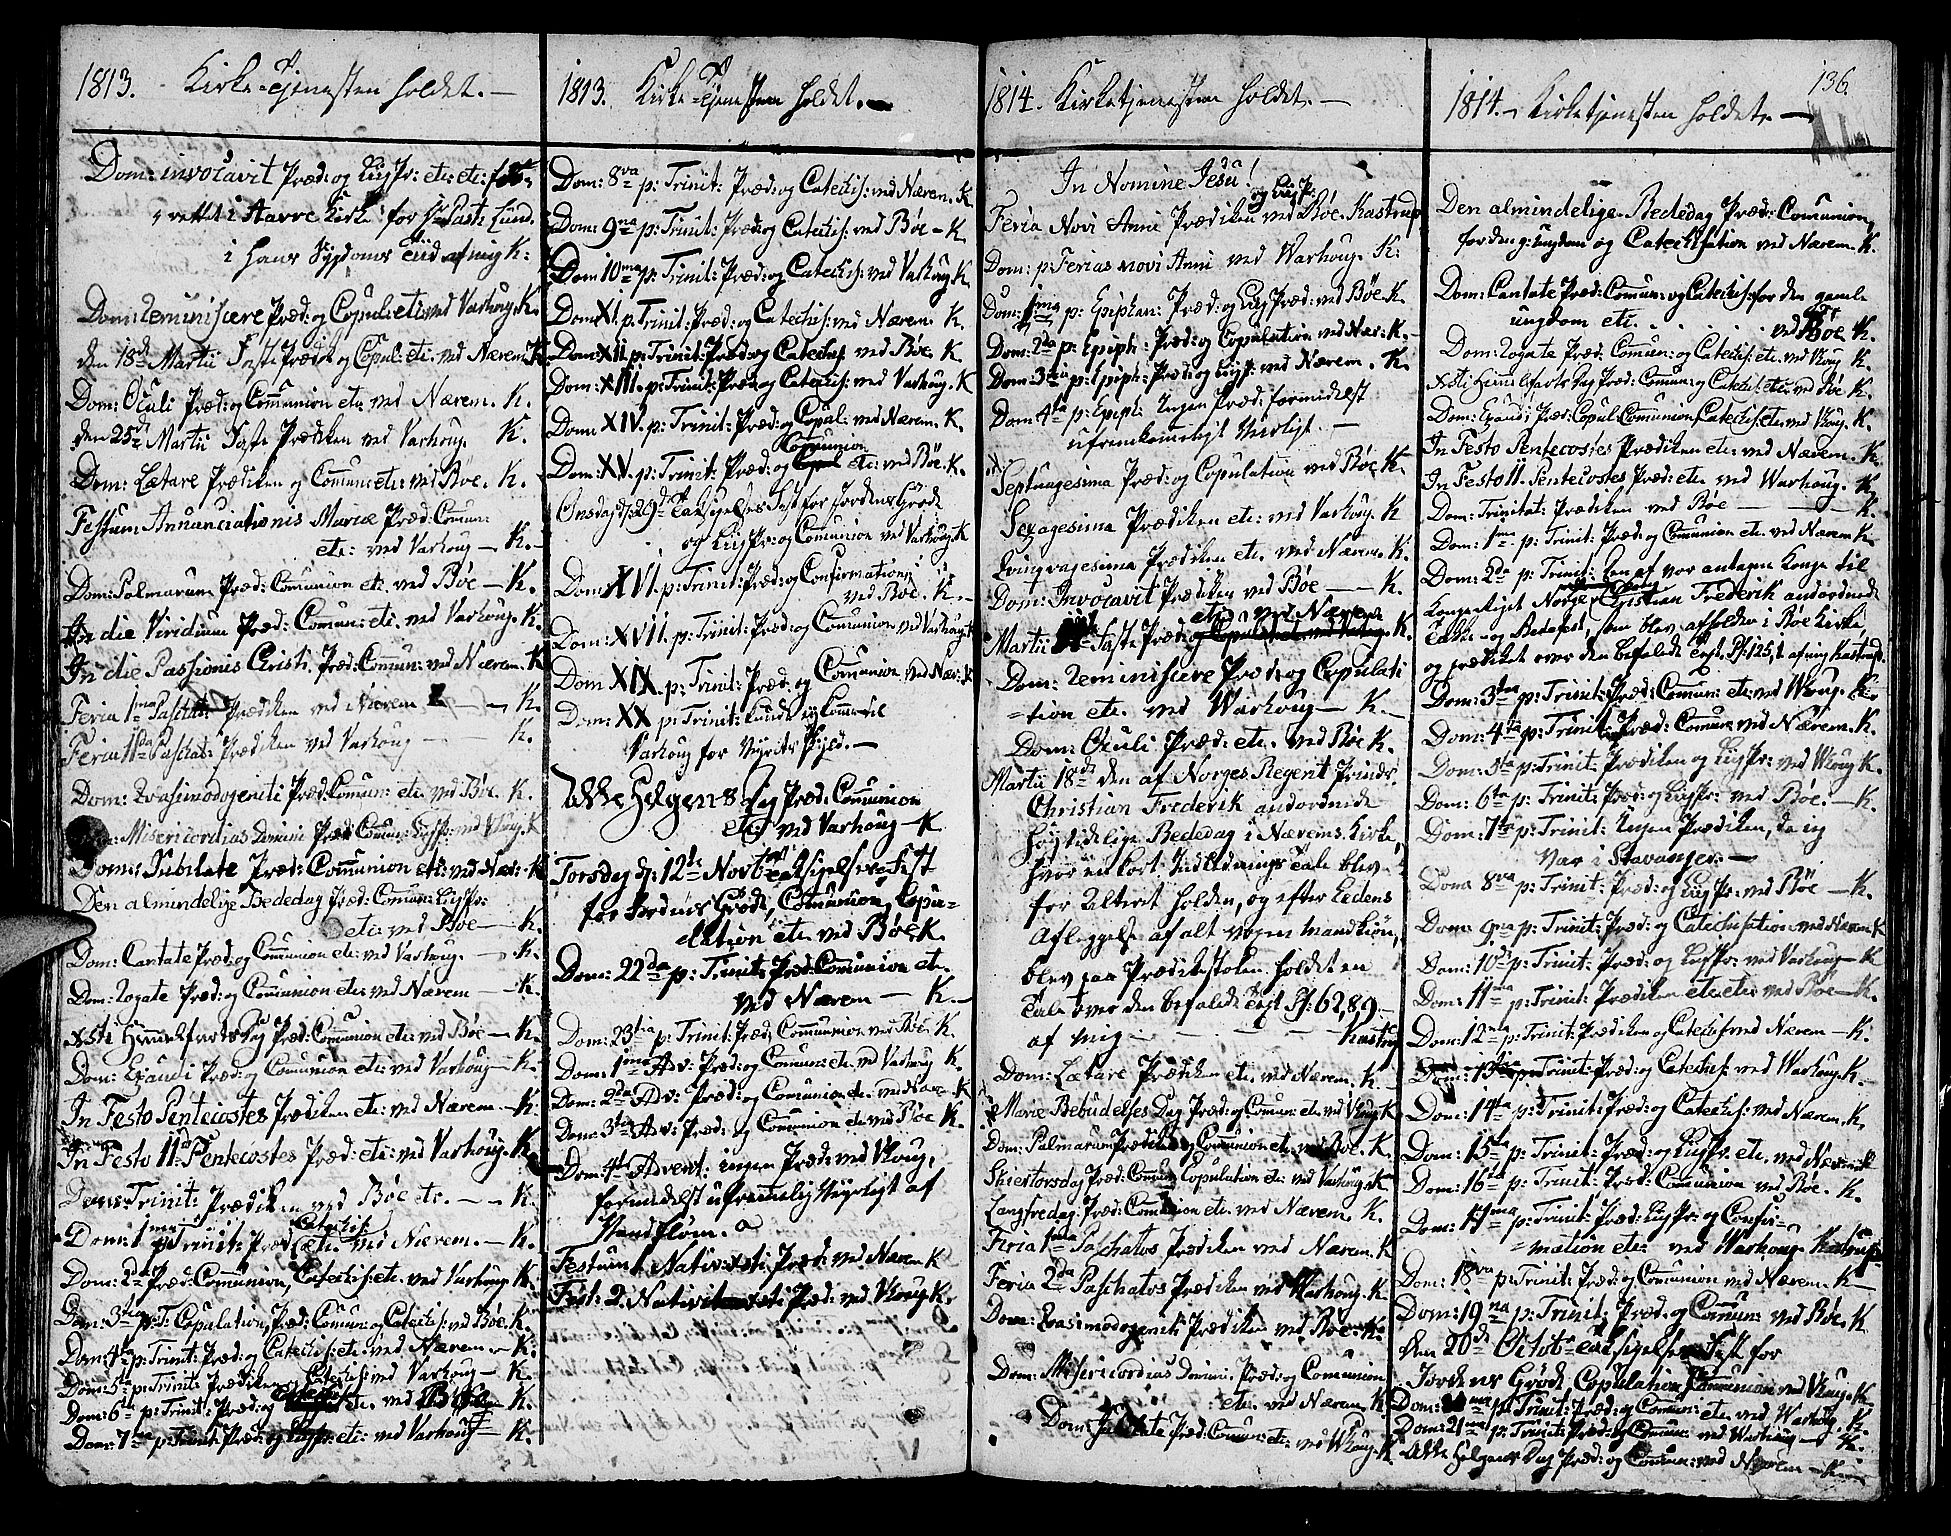 1813. Kirke-Tjenesten holdet. —
Dom: invocavit Præd: og LiigPr: etc: etc:
rettet i Haavre Kirke for Hr Past: Lund.
i hans Sygdoms Tiid af mig K:
Dom: Reminiscere Præd: og Copul: etc: ved Varhoug. K.
den 18d Martii Faste Præd: og Copul: etc. ved Nærem. K
Dom: Oculi Præd: og Communion etc. ved Nærem. K.
den 25d Martii Faste Prædiken ved Varhoug. K.
Dom: Lætare Prædiken og Commun: etc: ved Bøe. K.
Festum Annunciationis Mariæ Præd: Comun:
etc: ved Varhoug — K. —
Dom: Palmarum Præd: Comunion etc. ved Bøe — K.
In die Viridium Præd: Comun: etc. ved Varhoug. K.
In die Passionis Christi, Præd: Commun: ved Nærem. K
Feria 1ma Paschat: Prædiken ved Nærem — K.
Feria IIda Paschat: Prædiken ved Varhoug — K.
Dom: Qvasimodogeniti Præd: Comun: etc. ved Bøe. K.
Misericordias Domini Præd: Comun: LiigPr: ved Vhoug. K
Dom: Jubilate Præd: Communion etc: ved Nær: K
Den almindelige Bededag Præd: Comun: LiigPr:
etc: ved Bøe — K.
Dom: Cantate Præd: og Communion etc: ved Varhoug. — K.
Dom: Rogate Præd: og Communion etc: ved Nærem — K.
Xsti Himmelfarts Dag Præd: Communion etc: ved Bøe — K.
Dom: Exaudi Præd: og Communion etc: ved Varhoug — K.
In Festo Pentecostes Prædiken etc: ved Nærem. — K.
In Festo II Pentecostes Præd: etc: ved Varhoug. K.
Dom: Trinit: Prædiken ved Bøe etc. — K.
Catechis:
Dom: 1ma p: Trinit: Præd: etc: ved Nærem. — K.
Dom: 2da Præd: Communion, Catechis: etc. ved Varhoug K.
Dom: 3tia p: T: Copulation, Præd: Comun: og Catechis: ved Bøe. K.
Dom: 4ta p: Trinit: Præd: og Catechis: etc: ved Nærem. K.
Dom: 5ta p: Trinit: Prædiken og Catechis: ved Varhoug — K.
Dom: 6ta p: Trinit: Præd: og etc. ved Bøe K.
Dom: 7ma p: Trinit: Præd: og LiigPr: etc: ved Varhoug — K.

1813. Kirke-Tjenesten holdet. —
Dom: 8va p: Trinit: Præd: og Catechis: ved Nærem. K
Dom: 9na p: Trinit: Præd: og Catechis: ved Bøe — K
Dom 10ma p: Trinit: Præd: og Catechis: ved Varhoug K.
Dom XI p: Trinit: Præd: og Catechis: ved Nærem. K.
Dom: XII. p: Trinit: Præd: og Catechis: ved Bøe. K.
Dom: XIII. p: Trinit: Præd: og Catechis: ved Varhoug. K
Dom XIV. p: Trinit: Præd: og Copul: ved Nærem. K.
Communion
Dom: XV. p: Trinit: Præd: og etc: ved Bøe. K.
Onsdag d: 29d Taksigelses Fest for Jordens Grøde
og LiigPr: og Comunion ved Varhoug. K
Dom XVI. p: Trinit: Præd: og Confirmation
ved Bøe. K. —
Dom: XVII. p: Trinit: Præd: og Comunion ved Varhoug. K
Dom XIX. p: Trinit: Præd: og Communion ved Nær: K
Dom: XX p: Trinit: kunde ej komme til
Varhoug for Vejrets Skyld. —
Alle Helgens Dag Præd: Communion
etc: ved Varhoug — K
Torsdag d: 12te Novbr Taksigelses-Fest
for Jordens Grøde, Comunion, Copu=
elation etc: ved Bøe K.
Dom: 22da p: Trinit: Præd: Communion etc.
ved Nærem — K. —
Dom: 23tia p: Trinit: Præd: Communion ved Bøe K.
Dom: 1ma Adv: Præd: og Comun: etc. ved Varhoug K.
Dom: 2da Adv: Præd: og Comunion etc. ved Nær: K
Dom: 3tia Adv: Præd: og Communion etc ved Bøe K.
Dom: 4ta Advent: ingen Præd: ved Vhoug,
formedelst ufremkomelig Vejrligt af
Vandfloem.
Festum Nativ: Xsti Præd: ved Nærem K
Fest: 2. Nativit: Xsti Præd: ved Vhoug K.

1814. Kirketjenesten holdet. —
In Nomine Jesu!
og LiigP:
Feria Novi Anni Prædiken ved Bøe. Kastrup
Dom: p: Ferias novi Anni ved Warhoug. K:
Dom: 1ma p: Epiphan: Præd: og LiigPræd: ved Bøe. K.
Dom: 2da p: Epiph: Præd: og Copulation ved Nær: K. —
Dom: 3tia p: Epiph: Præd: og LiigPr: ved Nærem. K.
Dom: 4ta p: Epiph: Ingen Præd: formedelst
ufremkomeligt Veirligt. —
Septuagesima Præd: og Copulation ved Bøe K.
Sexagesima Prædiken etc: ved Varhoug. K
Qvinqvagesima Prædiken etc. ved Nærem. K.
Dom: Invocavit Prædiken ved Bøe — K.
etc. ved Nærem
Martii Faste Præd: og Copulat: etc ved Varhoug. K.
Dom: Reminiscere Præd: og Copulati
=tion etc. ved Warhoug — K. —
Dom: Oculi Præd: etc. ved Bøe K.
Martii 18de den af Norges Regent Prinds
Christian Frederik anordnede
høytidelige Bededag i Nærems Kirke,
hvor en kort Indlednings Tale blev
for Alteret holden, og efter Eedens
Aflæggelse af alt voxen Mandkiøn,
blev paa Prædikestolen holdt en
Tale over den befalede Text Ps: 62, 8, 9.
af mig — Kastrup
Dom: Lætare Prædiken etc. ved Nærem. K
Mariæ Bebudelses Dag Præd: og Comun: etc ved Vhoug K
Dom: Palmarum Prædiken og Communion etc. ved Bøe. K.
Skiertorsdag Præd: Comun: Copulation etc: ved Varhoug. K
Langfredag. Præd: Comunion etc. ved Nærem. K.
Feria 1ma Paschatos Prædiken ved Nærem. K
Feria 2da Paschatos Prædiken ved Warhoug. K.
Dom: Qvasimodogeniti Prædiken ved Bøe. K.
Dom: Misericordias Domini: Præd: og Comunion
etc. ved Nærem. K
Dom: Jubilate Præd: Comun: etc: ved Whoug. K

136.
1814. — Kirketjenesten holdet. —
Den almindelige Bededag Præd: Comunion,
for den g: Ungdom og Catechisation ved Nærem. K.
Dom: Cantate Præd: Comun: og Catechis: for den gamle
ungdom etc. . . . . ved Bøe K.
Dom: Rogate Præd: Comun: og Catechis: etc. ved Vhoug K.
Xsti Himmelfarts Dag Præd: Comun: og Catechis: etc. ved Bøe K.
Dom: Exaudi Præd: Copul: Comunion, Catechis: etc. ved Vhoug. K.
In Festo Pentecostes Prædiken etc: ved Nærem. K.
In Festo II. Pentecostes Præd: etc. ved Warhoug. K
Dom: Trinitat: Prædiken ved Bøe — K.
Dom: 1ma p: Trinit: Præd: og Comunion etc. ved Nærem K.
Dom: 2da p: Trinit: Den af vor antagen Konge til
Kongeriget Norge Christian Frederik anordnede
Takke- og Bedefest, som blev afholden i Bøe Kirke
og prædiket over den befalede Text. Ps: 125, 1. af mig Kastrup
Dom: 3tia p: Trinit: Præd: Comun: etc: ved Whoug. K.
Dom: 4ta p: Trinit: Præd: Comun: ved Nærem. K.
Dom: 5ta p: Trinit: Prædiken og LiigPr: ved Vhoug K.
Dom: 6ta p: Trinit: Præd: og LiigPr: ved Bøe. — K.
Dom: 7ma p: Trinit: Ingen Prædiken, da jeg
var i Stavanger. —
Dom: 8va p: Trinit: Præd: og LiigPr: ved Bøe — K.
Dom: 9na p: Trinit: Præd: og Catechisation ved Nærem K
Dom: 10d p: Trinit: Præd: og LiigPr: ved Varhoug — K
Dom: 11ma p: Trinit: Prædiken etc: etc: ved Bøe — K.
Dom: 12ma p: Trinit: Prædiken og Catechis: ved Nærem — K.
Dom: 13tia p: Trinit: Præd: og Catechis: ved Warhoug. K
Dom: 14ta p: Trinit: Præd: og Catechis: ved Nærem. K.
Dom: 15ta p: Trinit: Præd: og LiigPr. etc. ved Nærem K
Dom: 16ta p: Trinit: Præd: Communion ved Bøe. K.
Dom: 17ma p: Trinit: Præd: LiigPr: og Confir=
=mation etc: ved Warhoug. Kastrup
Dom: 18va p: Trinit: Præd: og Communion ved Nærem. K
Dom: 19na p: Trinit: Præd: og Comun: ved Bøe. K
den 20d Octobr Taksigelses Fest for
Jordens Grøde, Copulation, Communion ved Vhoug. K
Dom: p: Trinit: Præd: og Comun: etc. ved Warhoug. K.
Dom: 21ma p: Trinit: Præd: og Comun: ved Warhoug — K.
Alle Helgens Dag Præd: og Comun: ved Nærem — K